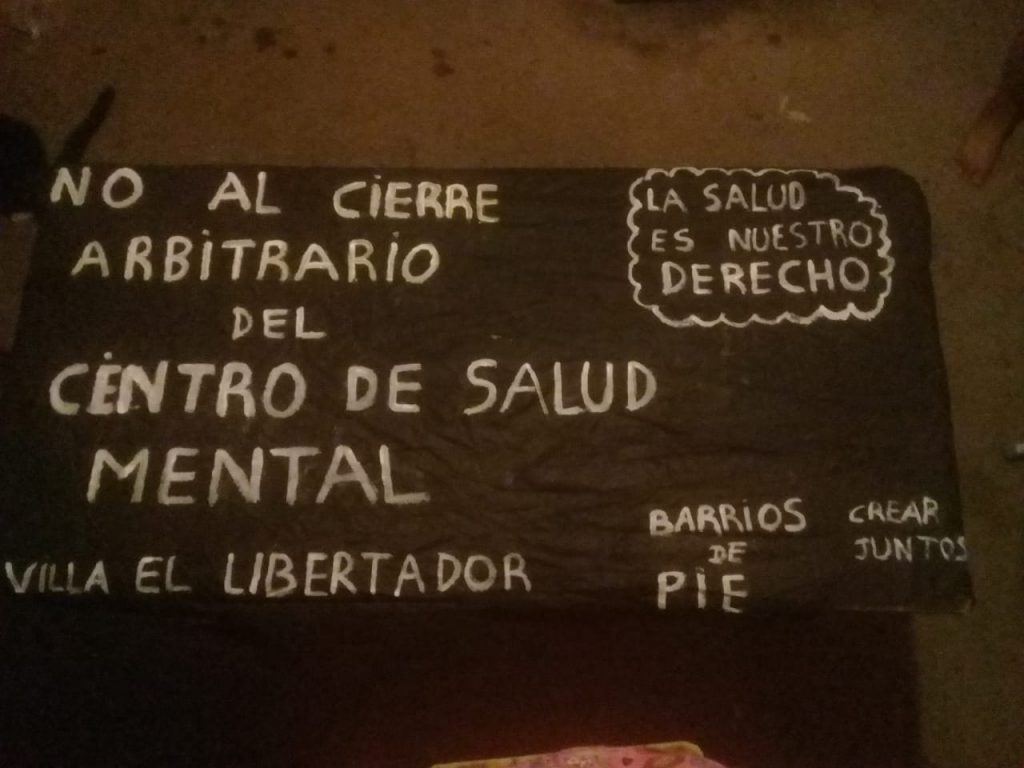 NO AL CIERRE
ARBITRARIO
DEL
CENTRO DE SALUD
MENTAL
VILLA EL LIBERTADOR
LA SALUD
ES NUESTRO
DERECHO
BARRIOS
DE
PIE
CREAR
JUNTOS